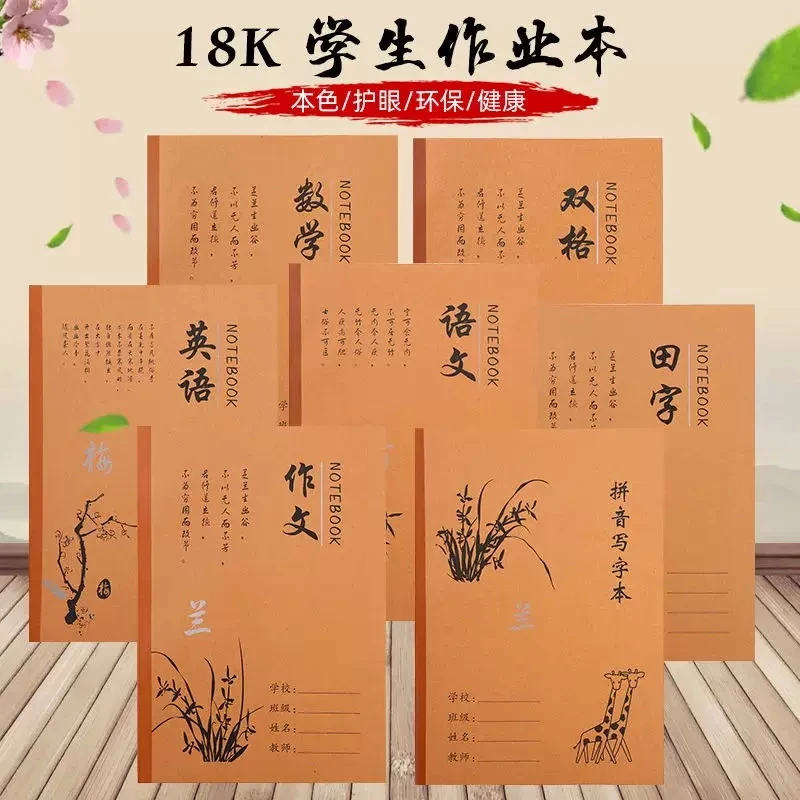 18K 学生作业本
本色/护眼/环保/健康
数学
NOTEBOOK
芝兰生幽谷,
不以无人而不芳,
君行道立德,
不为穷困而改节。
双格
NOTEBOOK
芝兰生幽谷,
不以无人而不芳,
君行道立德,
不为穷困而改节。
英语
NOTEBOOK
梅
梅
学
班
语文
NOTEBOOK
宁可食无肉,
不可居无竹,
无肉令人瘦,
无竹令人俗,
人瘦尚可肥,
士俗不可医。
田字
NOTEBOOK
芝兰生幽谷,
不以无人而不芳,
君行道立德,
不为穷困而改节。
作文
NOTEBOOK
芝兰生幽谷,
不以无人而不芳,
君行道立德,
不为穷困而改节。
兰
学校:
班级:
姓名:
教师:
拼音写字本
兰
学校:
班级:
姓名:
教师: